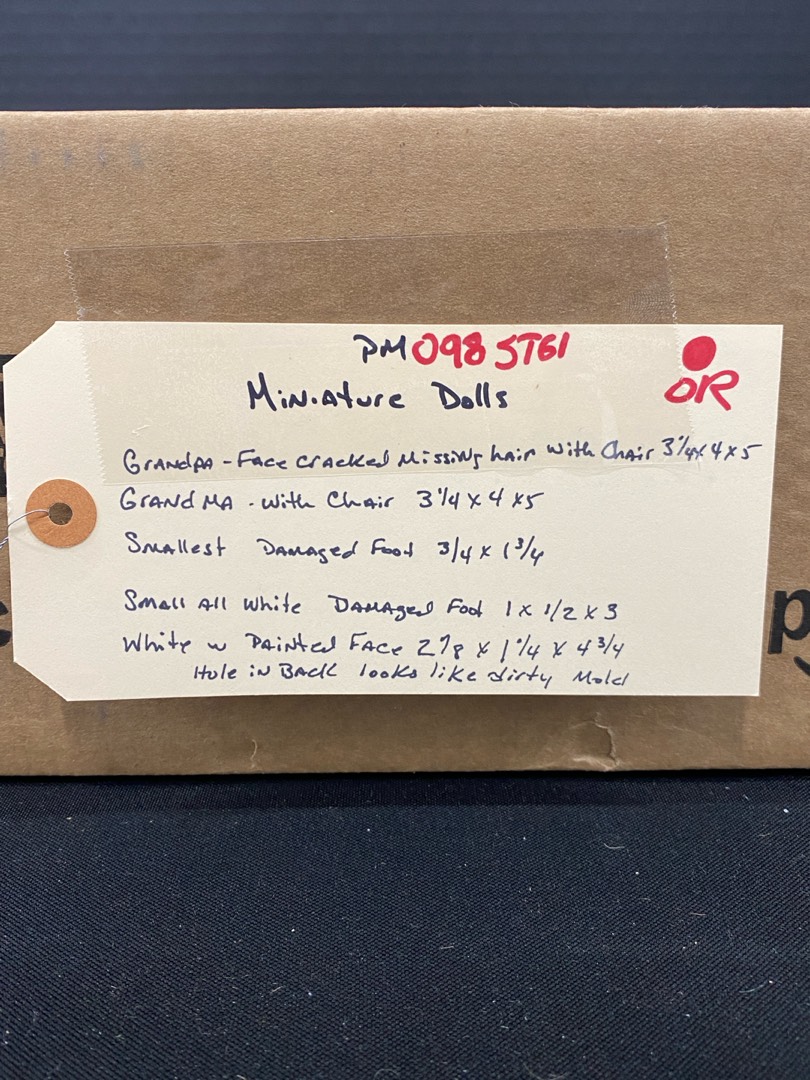 PM 098 STG1
OR
Miniature Dolls
Grandpa - Face cracked Missing hair with Chair 3 1/4 x 4 x 5
Grand MA - With Chair 3 1/4 x 4 x 5
Smallest Damaged Foot 3/4 x 1 3/4
Small All White Damaged Foot 1 x 1/2 x 3
White w Painted Face 2 7/8 x 1 1/4 x 4 3/4
Hole in Back looks like dirty Mold
p